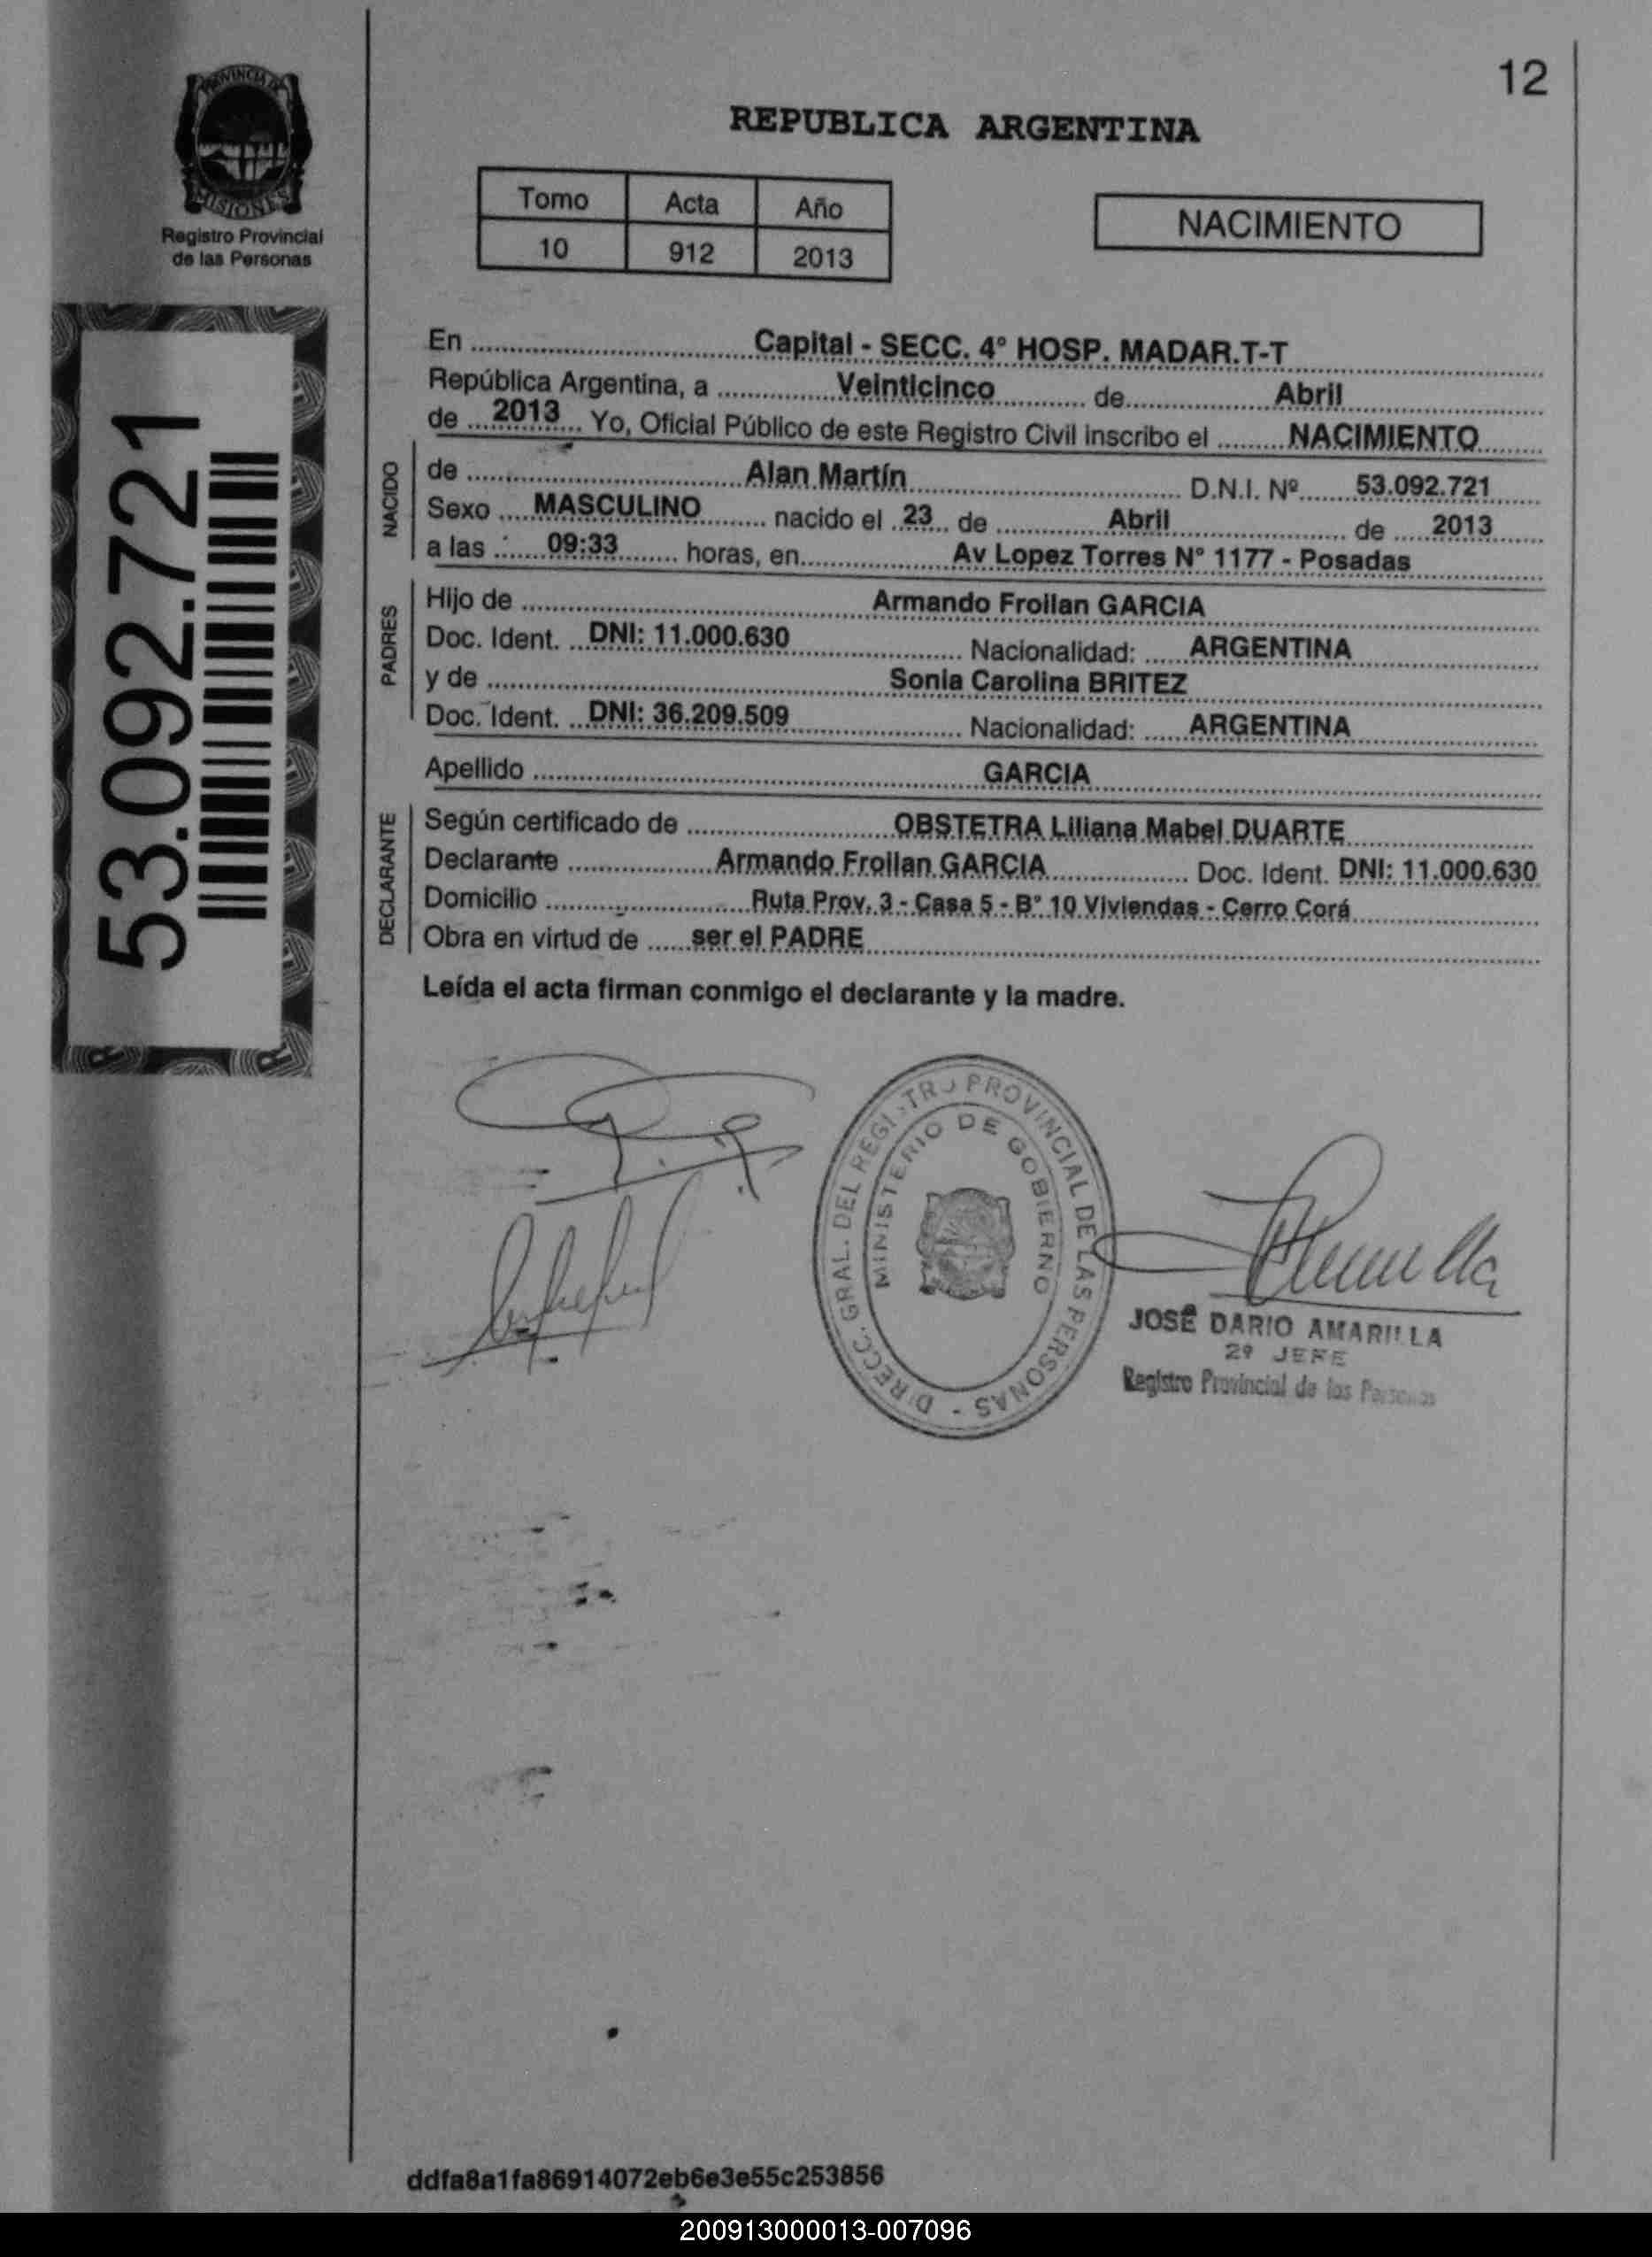 12
PROVINCIA DE
MISIONES
Registro Provincial
de las Personas
REPUBLICA ARGENTINA
Tomo Acta Año
10 912 2013
NACIMIENTO
53.092.721
En Capital - SECC. 4º HOSP. MADAR.T-T
República Argentina, a Veinticinco de Abril
de 2013 Yo, Oficial Público de este Registro Civil inscribo el NACIMIENTO
NACIDO
de Alan Martín D.N.I. Nº 53.092.721
Sexo MASCULINO nacido el 23 de Abril de 2013
a las 09:33 horas, en Av Lopez Torres N° 1177 - Posadas
PADRES
Hijo de Armando Froilan GARCIA
Doc. Ident. DNI: 11.000.630 Nacionalidad: ARGENTINA
y de Sonia Carolina BRITEZ
Doc. Ident. DNI: 36.209.509 Nacionalidad: ARGENTINA
Apellido GARCIA
DECLARANTE
Según certificado de OBSTETRA Liliana Mabel DUARTE
Declarante Armando Froilan GARCIA Doc. Ident. DNI: 11.000.630
Domicilio Ruta Prov. 3 - Casa 5 - B° 10 Viviendas - Cerro Corá
Obra en virtud de ser el PADRE
Leída el acta firman conmigo el declarante y la madre.
DIRECC. GRAL. DEL REGISTRO PROVINCIAL DE LAS PERSONAS -
MINISTERIO DE GOBIERNO
JOSÉ DARIO AMARILLA
2º JEFE
Registro Provincial de las Personas
ddfa8a1fa86914072eb6e3e55c253856
200913000013-007096